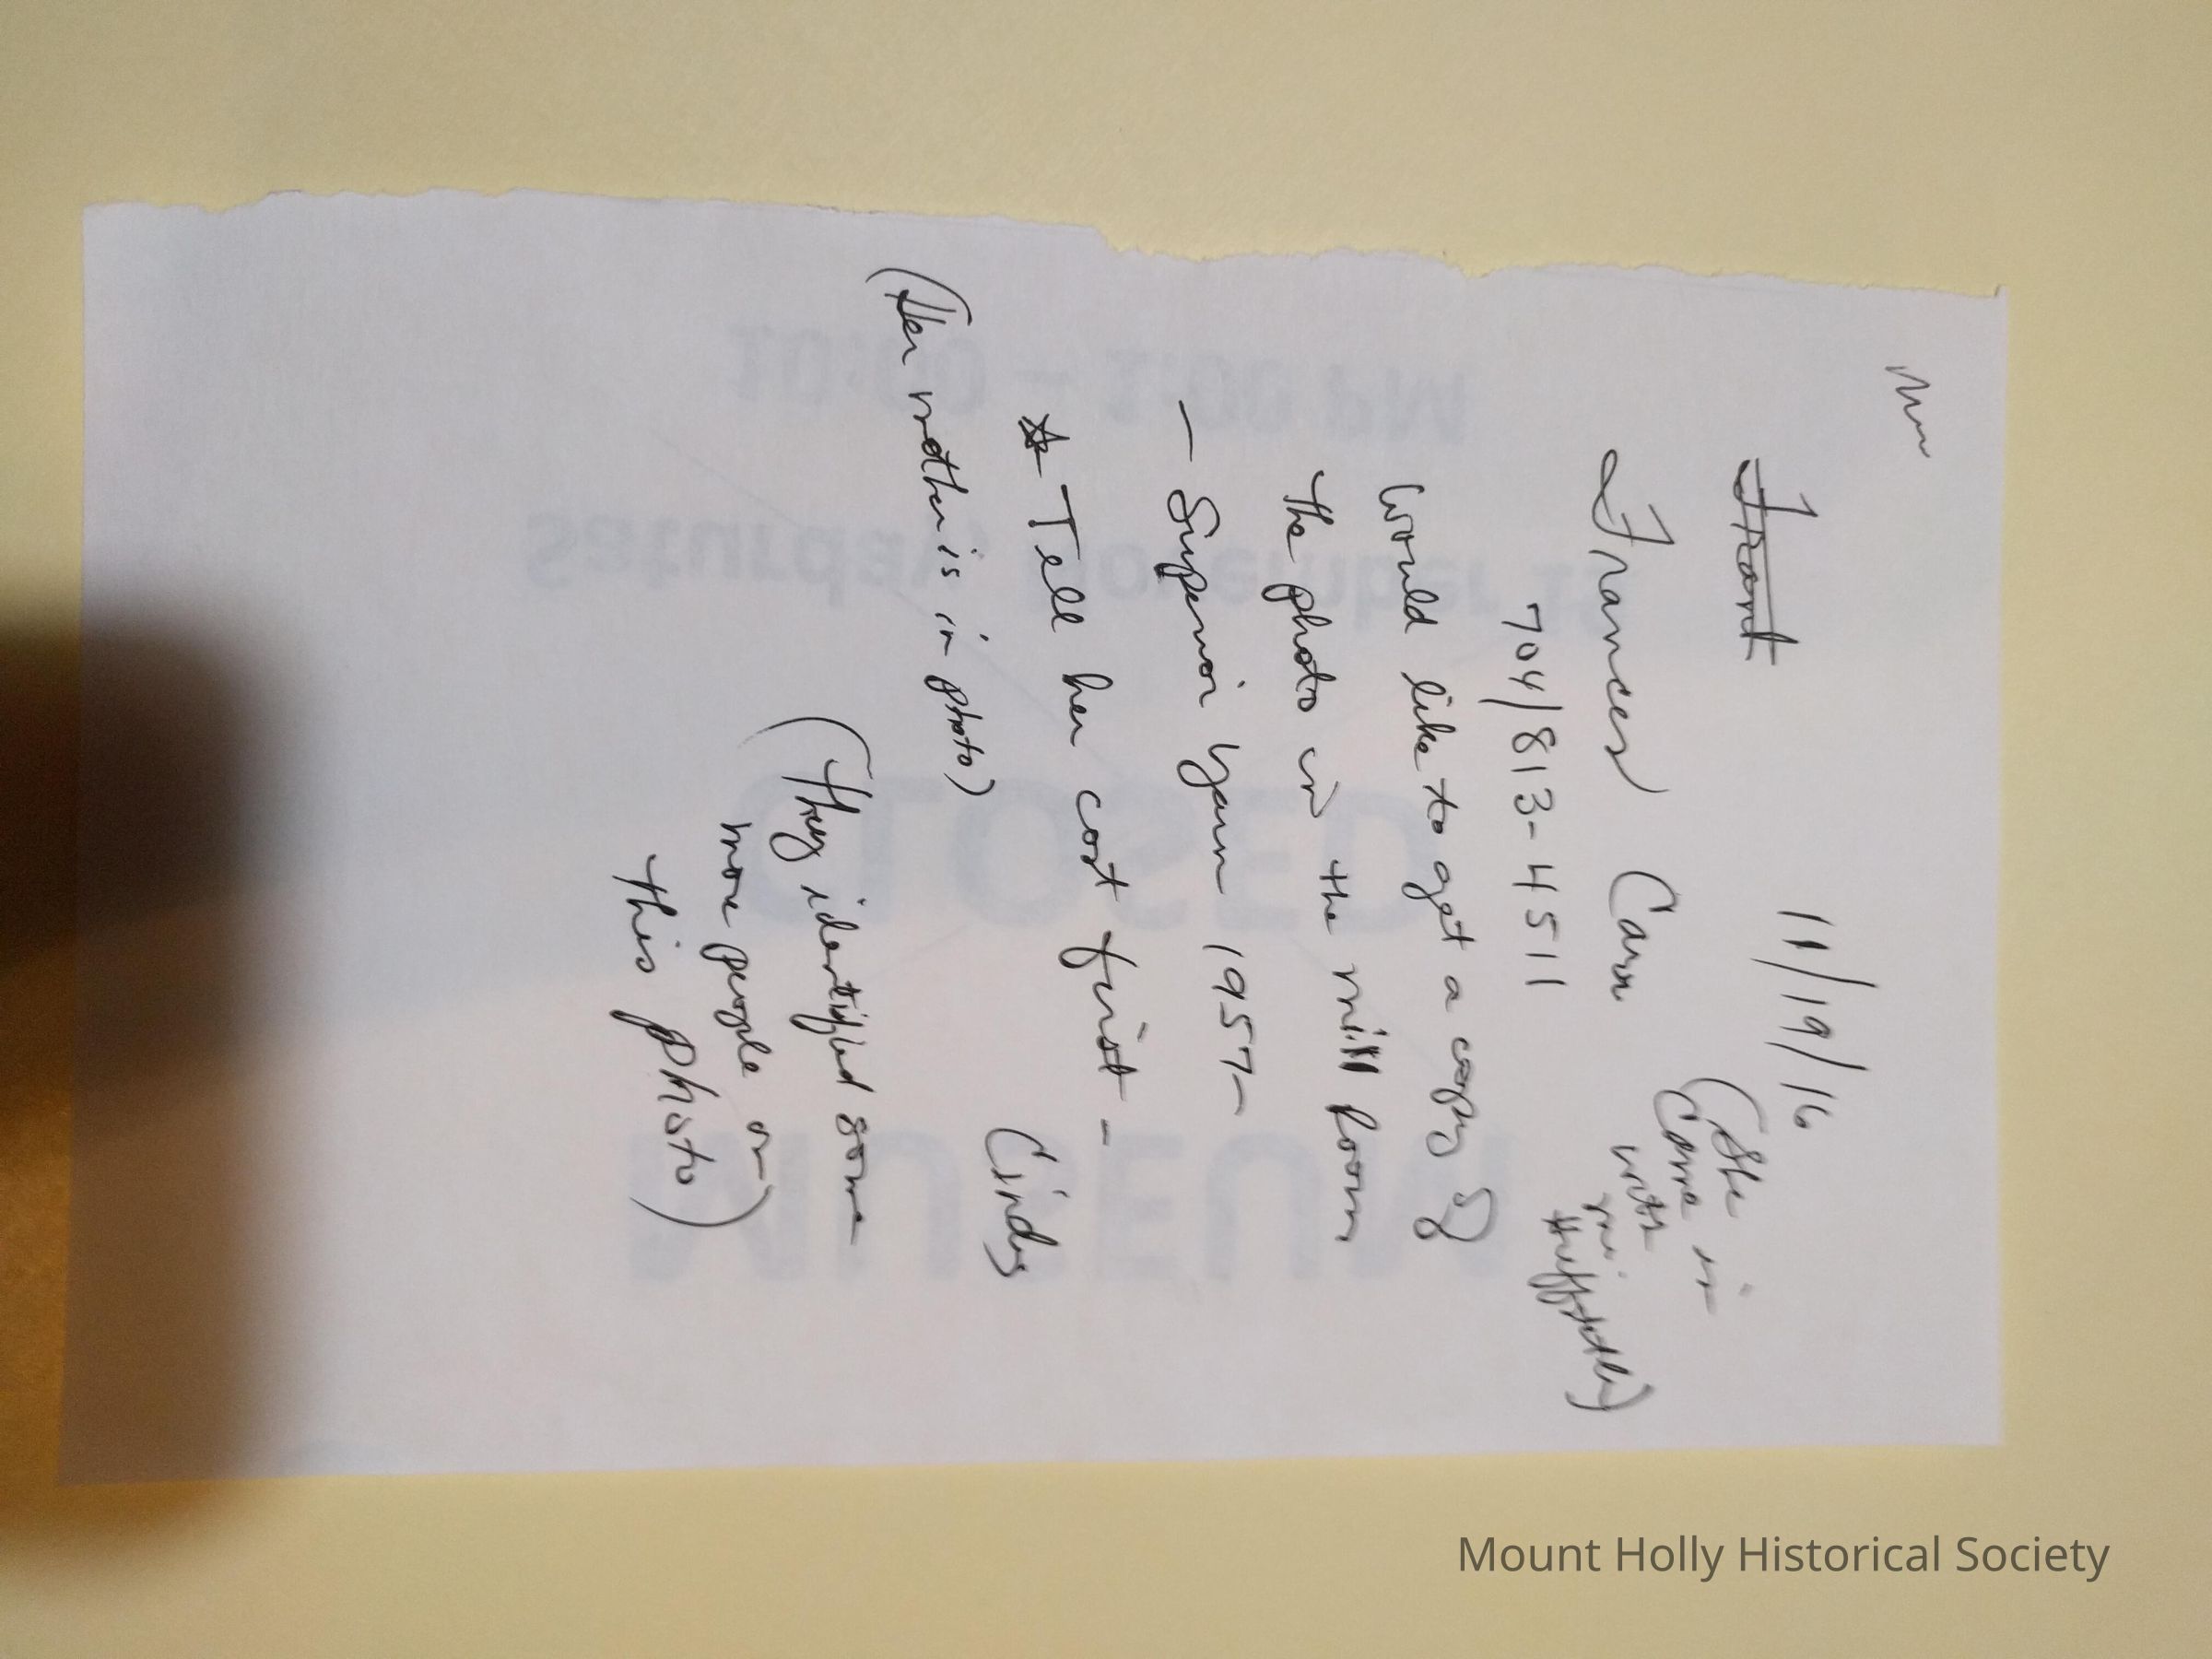 11/19/16
Front
(She
came in
with
Huffstetler)
Frances Carr
704/813-4511
Would like to get a copy of
the photo in the mill Room
- Superior Yarn 1957-
* Tell her cost first -
Cindy
(Her mother is in photo)
(they identified some
more people on
this photo)
MUSEUM
CLOSED
Saturday, November 19
10:00 - 1:00 PM
Mount Holly Historical Society